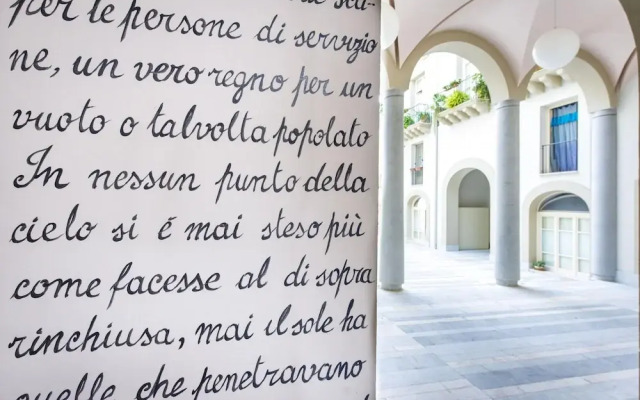 per le persone di servizio
ne, un vero regno per un
vuoto o talvolta popolato
In nessun punto della
cielo si é mai steso più
come facesse al di sopra
rinchiusa, mai il sole ha
quelle che penetravano